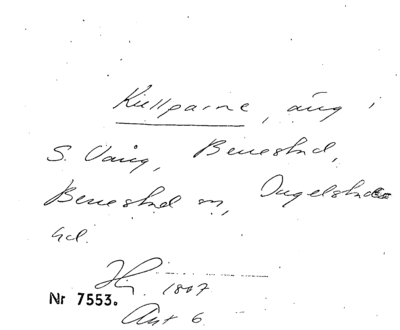 Kiellparne, äng i
S. Vång, Benestad,
Benestad sn, Ingelstads
hd.
1807
Nr 7553.
Akt 6